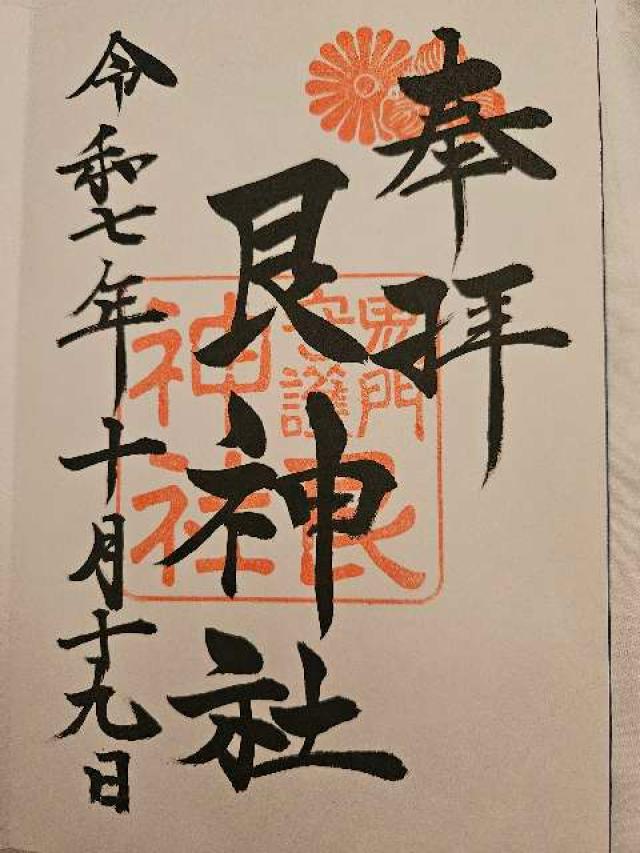 奉拝
艮神社
令和七年十月十九日
鬼門
守護
艮
神社